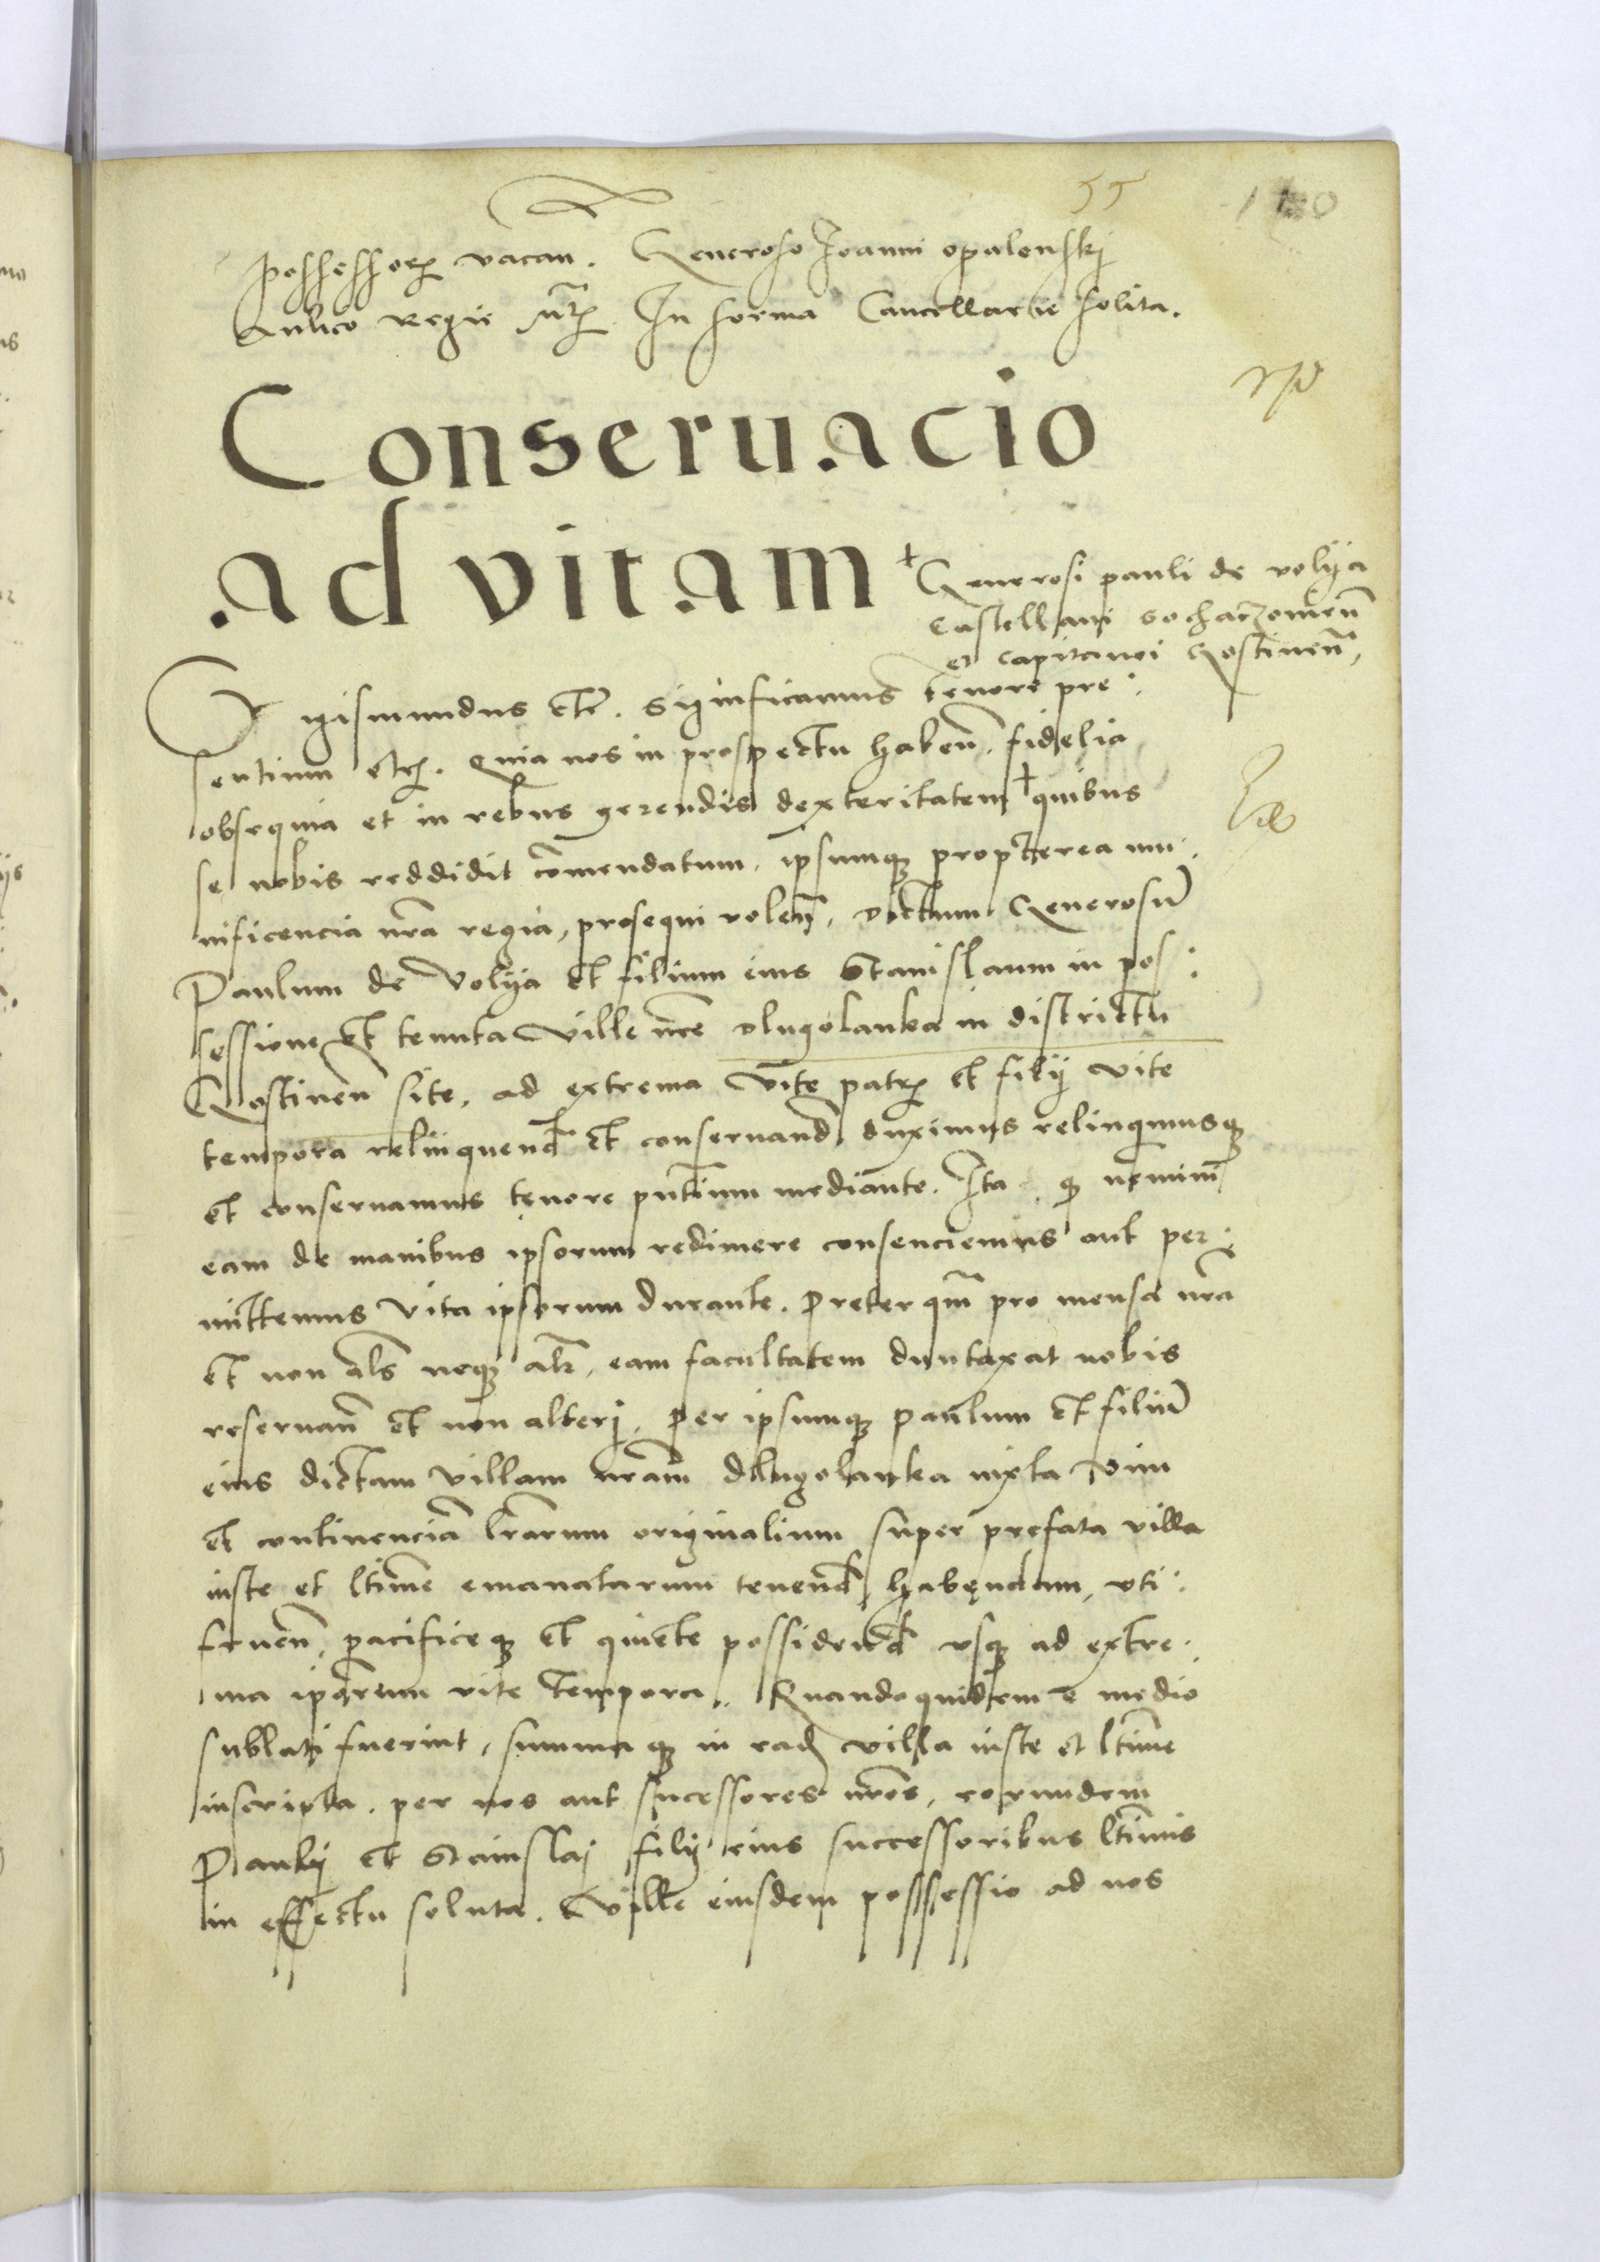 55
possessorum vacan. Generoso Ioanni opalenskj
Aulico Regie mtis In forma Cancellarie solita.
Conseruacio
ad vitam
+ Generosi pauli de volija
castellani sochaczouien
et capitanei Gostinen,
Sigismundus etc. Significamus tenore pre:
sentium etc. Quia nos in prospectu haben. fidelia
obsequia et in rebus gerendis dexteritatem + quibus
se nobis reddidit comendatum. ipsumque propterea mu:
nificencia nra regia, prosequi volen, dictum Generosum
Paulum de Volija et filium eius Stanislaum in pos:
sessione et tenuta ville nre Dlugolanka in districtu
Gostinen site, ad extrema vite patris et filij vite
tempora relinquend et conseruand duximus relinquimusque
et conseruamus tenore pntium mediante. Ita quod nemini
eam de manibus ipsorum redimere consenciemus aut per:
mittemus vita ipsorum durante. Preter qm pro mensa nra
et non als neque alr, eam facultatem duntaxat nobis
reseruan et non alterj. Per ipsumque Paulum et filium
eius dictam villam nram dlugolanka iuxta vim
et continencia lrarum originalium super prefata villa
iuste et ltime emanatarum tenend, habendam, vti:
fruen, pacificeque et quiete possidend vsque ad extre:
ma ipsorum vite tempora. Quandoquidem e medio
sublati fuerint, summaque in eadem villa iuste et ltime
inscripta. per nos aut successores nros, eorundem
Paulij et Stanislaj filij eius successoribus ltimis
in effectu soluta. Ville eiusdem possessio ad nos